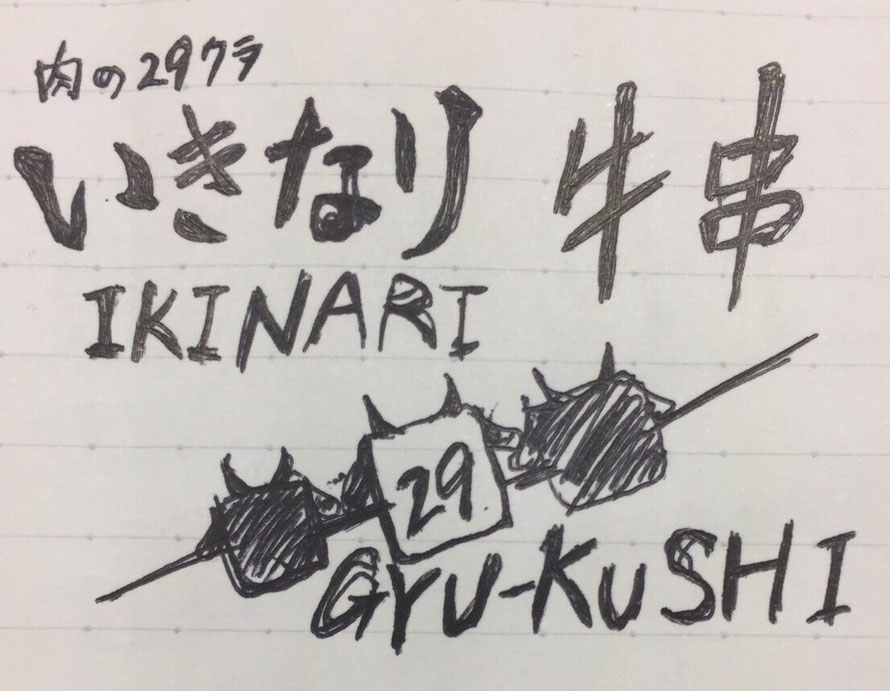 肉の29クラ
いきなり 牛串
IKINARI
29
GYU-KUSHI